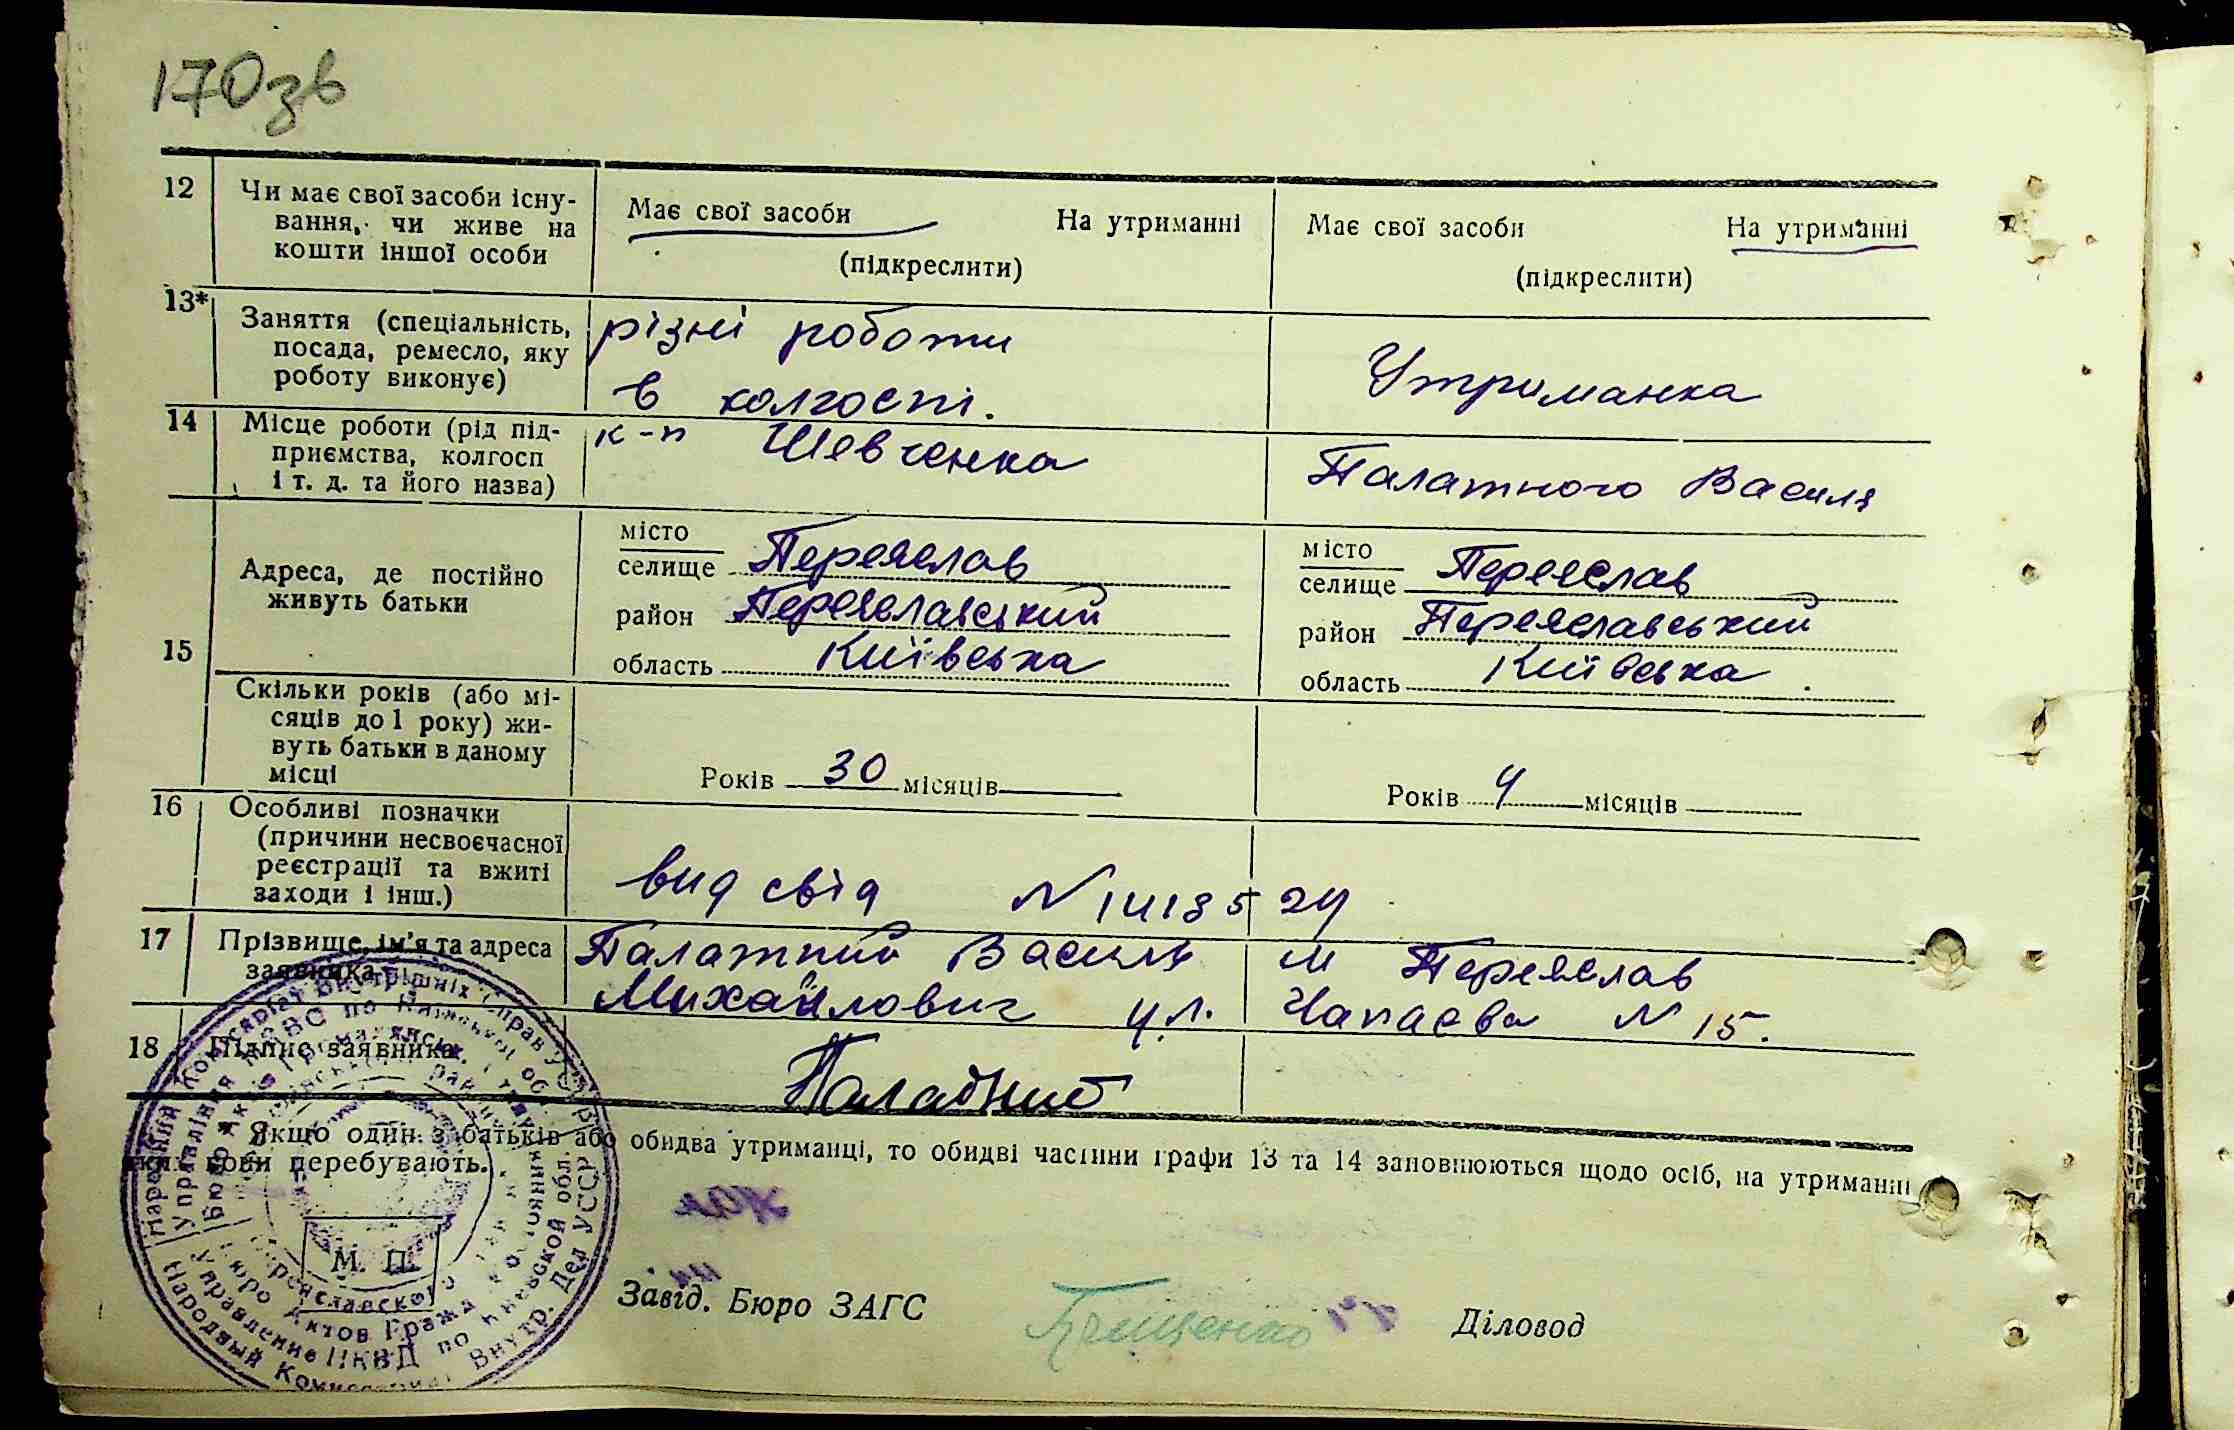 170зв
12 Чи має свої засоби існу-
вання, чи живе на
кошти іншої особи
Має свої засоби На утриманні
(підкреслити)
Має свої засоби На утриманні
(підкреслити)
13* Заняття (спеціальність,
посада, ремесло, яку
роботу виконує)
різні роботи
в колгоспі.
Утриманка
14 Місце роботи (рід під-
приємства, колгосп
і т. д. та його назва)
к-п Шевченка
Палатного Василя
15 Адреса, де постійно
живуть батьки
місто
селище Переяслав
район Переяславський
область Київська
місто
селище Переяслав
район Переяславський
область Київська.
Скільки років (або мі-
сяців до 1 року) жи-
вуть батьки в даному
місці
Років 30 місяців
Років 4 місяців
16 Особливі позначки
(причини несвоєчасної
реєстрації та вжиті
заходи і інш.)
вид свід N
17 Прізвище, ім'я та адреса
заявника
Палатний Василь м Переяслав
Михайлович ул. Чапаєва N 15.
18 Підпис заявника
Палатний
Якщо один з батьків або обидва утриманці, то обидві частини графи 13 та 14 заповнюються щодо осіб, на утриманні
яких вони перебувають.
М. П.
Завід. Бюро ЗАГС
Діловод
Народный Комиссариат Внутр. Дел УССР
Управление НКВД по Киевской обл.
Бюро Актов Гражд